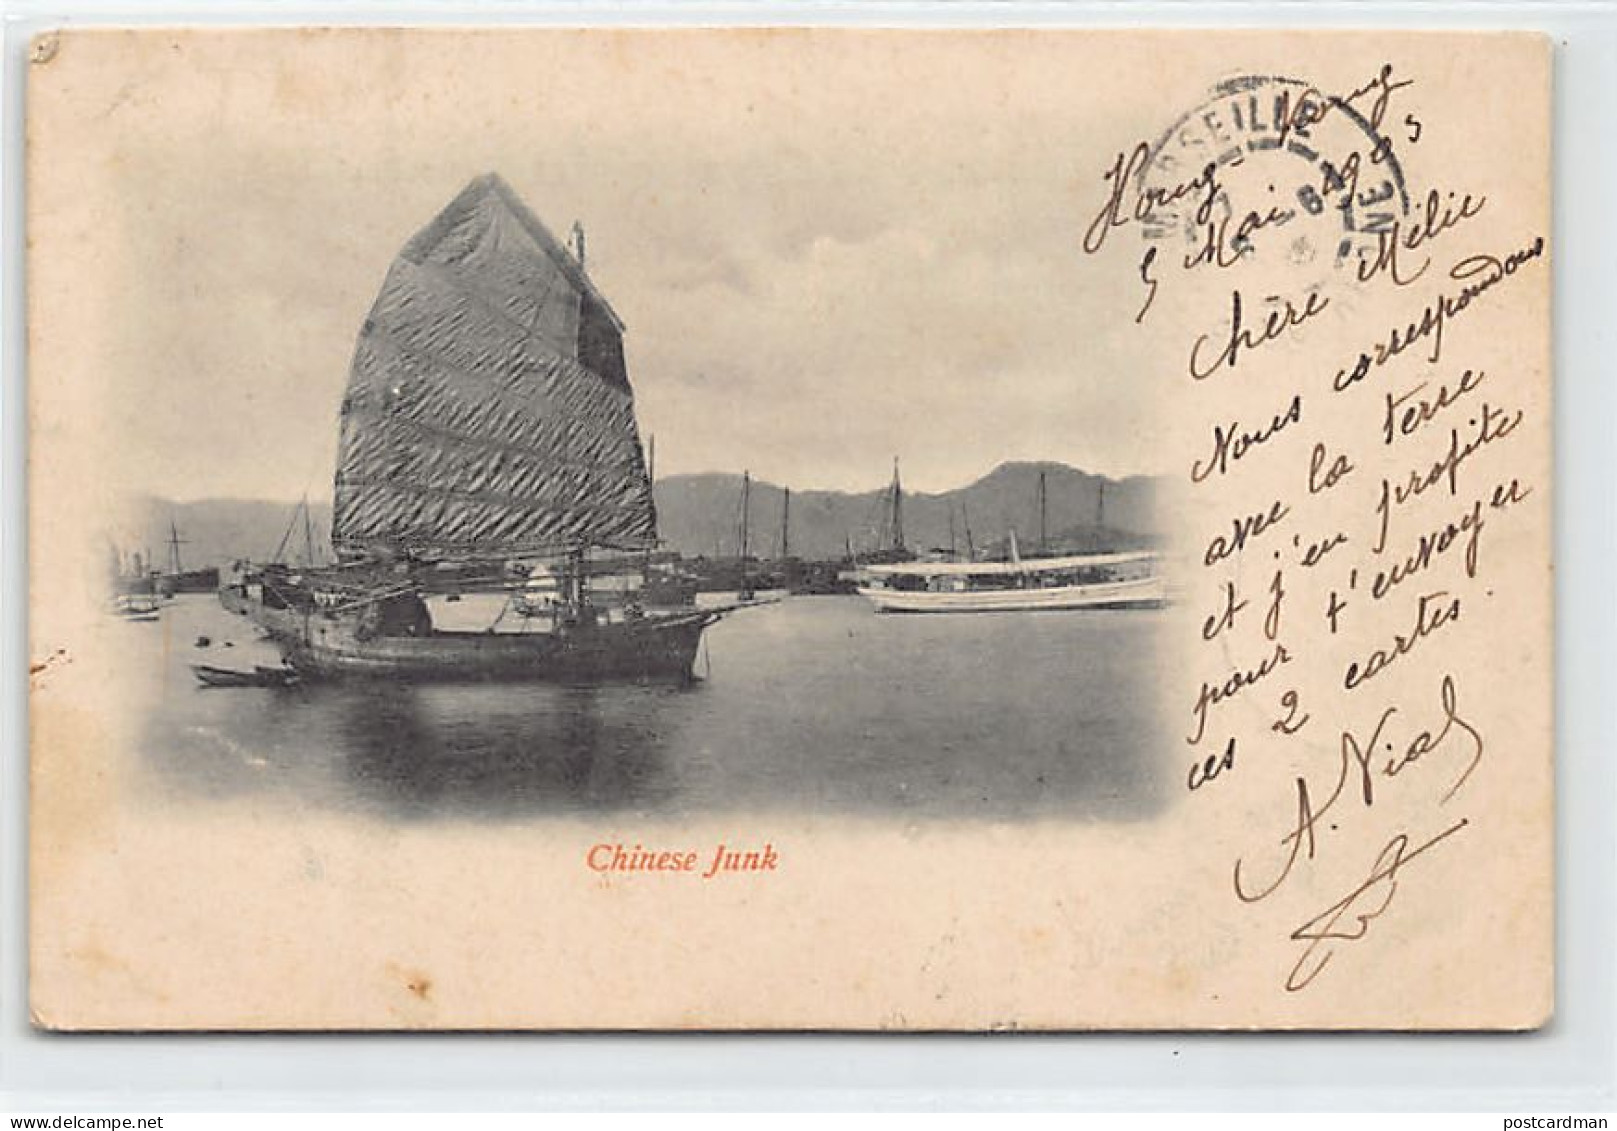 Hong-Kong
5 Mai 1903
Chère Mélie
Nous correspondons
avec la terre
et j'en profite
pour t'envoyer
ces 2 cartes.
A. Vial
MARSEILLE
Chinese Junk
postcardman